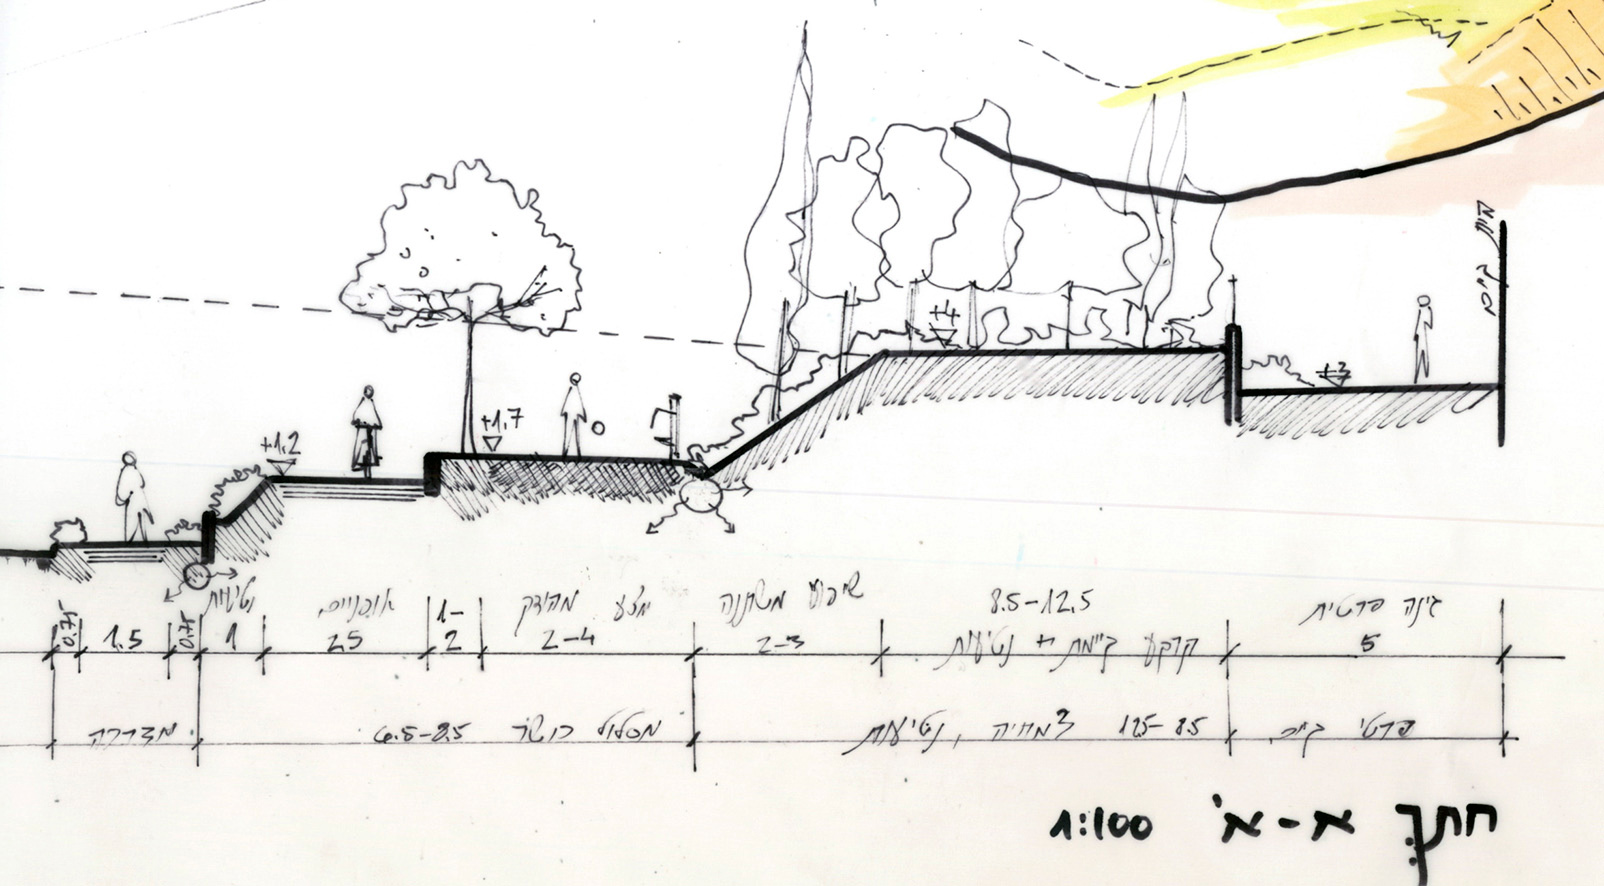 +4
+3
+1.7
+1.2
גינה פרטית
8.5-12.5
שיפוע משתנה
מצע מהודק
אופניים
נטיעות
5
קרקע קיימת + נטיעות
2-3
2-4
1-2
2.5
1
0.75
1.5
0.75
פרטי קיים
12.5-8.5 צמחיה, נטיעות
מסלול כושר 6.5-8.5
מדרכה
חתך א-א' 1:100